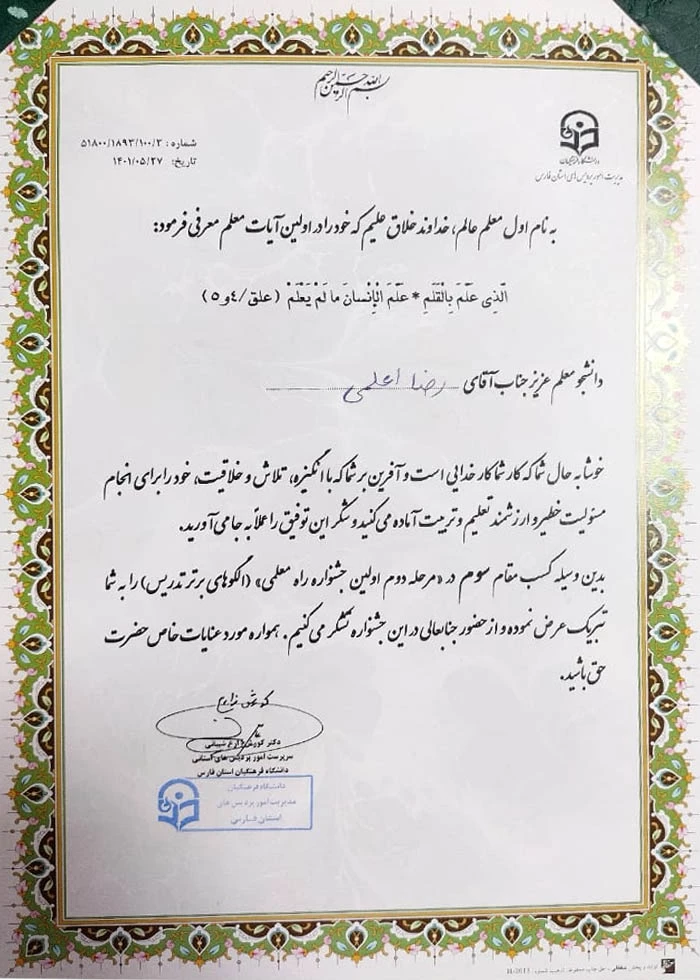 بسم الله الرحمن الرحیم
دانشگاه فرهنگیان
مدیریت امور پردیس های استان فارس
شماره : ۵۱۸۰۰/۱۸۹۳/۱۰۰/۳
تاریخ: ۱۴۰۱/۰۵/۲۷
به نام اول معلم عالم، خداوند خلاق علیم که خود را در اولین آیات معلم معرفی فرمود:
الَّذِی عَلَّمَ بِالْقَلَمِ * عَلَّمَ الْإِنْسانَ ما لَمْ یَعْلَمْ (علق/٤و٥)
دانشجو معلم عزیز جناب آقای رضا اعلمی
خوشا به حال شما که کار شما کار خدایی است و آفرین بر شما که با انگیزه، تلاش و خلاقیت، خود را برای انجام
مسئولیت خطیر و ارزشمند تعلیم و تربیت آماده می کنید و شکر این توفیق را عملاً به جا می آورید.
بدین وسیله کسب مقام سوم در «مرحله دوم اولین جشنواره راه معلمی» (الگوهای برتر تدریس) را به شما
تبریک عرض نموده و از حضور جنابعالی در این جشنواره تشکر می کنیم. همواره مورد عنایات خاص حضرت
حق باشید.
دکتر کورش
سرپرست امور پردیس های استانی
دانشگاه فرهنگیان استان فارس
دانشگاه فرهنگیان
مدیریت امور پردیس های
استان فارس